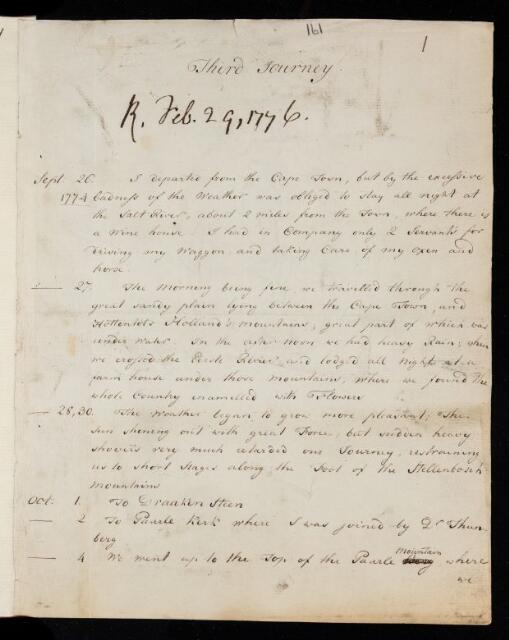 161
1
Third Journey.
R. Feb. 29, 1776.
Sept. 26. I departed from the Cape Town, but by the excessive
1774 badness of the Weather was obliged to stay all night at
the Salt River, about 2 miles from the Town, where there is
a Wine house. I had in Company only 2 Servants for
driving my Waggon and taking Care of my oxen and
horse.
— 27, The Morning being fine, we travelled through the
great sandy plain lying between the Cape Town, and
Hottentots Holland's mountains; great part of which was
under Water. In the after noon we had heavy Rain; when
we crossed the Eerste Rivier and lodged all night at a
farm house under those mountains, where we found the
whole Country enamelled with Flowers
— 28, 30. The Weather began to grow more pleasant; the
sun shening out with great Force, but sudden heavy
showers very much retarded our Journey, restraining
us to short stages along the Foot of the Stellenbosh
mountains
Oct: 1. To Draaken Steen
— 2 To Paarle Kerk where I was joined by Dr Thun
berg
— 4 We went up to the Top of the Paarle mountain where
we